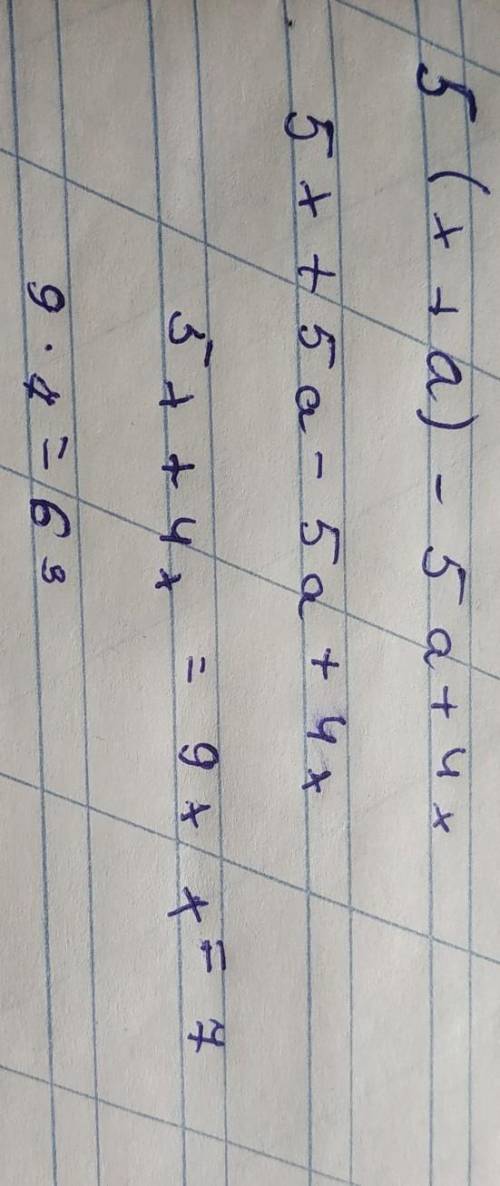 5 (x + a) - 5a + 4x
5x + 5a - 5a + 4x
5x + 4x = 9x x = 7
9 · 7 = 63